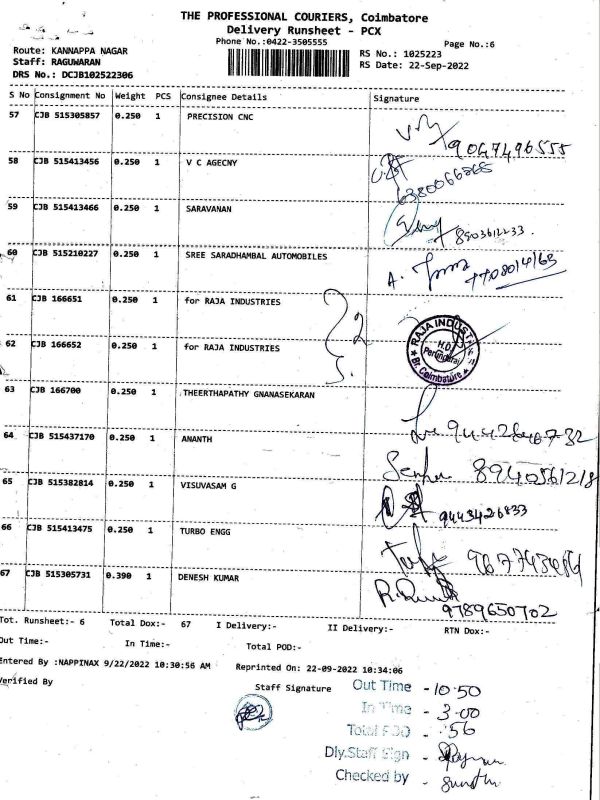 THE PROFESSIONAL COURIERS, Coimbatore
Delivery Runsheet - PCX
Phone No.:0422-3505555
Page No.:6
Route: KANNAPPA NAGAR
RS No.: 1025223
Staff: RAGUWARAN
RS Date: 22-Sep-2022
DRS No.: DCJB102522306
S No Consignment No Weight PCS Consignee Details Signature
57 CJB 515305857 0.250 1 PRECISION CNC
9047496555
58 CJB 515413456 0.250 1 V C AGECNY
59 CJB 515413466 0.250 1 SARAVANAN
8903612233.
60 CJB 515210227 0.250 1 SREE SARADHAMBAL AUTOMOBILES
61 CJB 166651 0.250 1 for RAJA INDUSTRIES
2
RAJA INDUSTRIES
62 CJB 166652 0.250 1 for RAJA INDUSTRIES
H.O
Perundurai
Br. Coimbatore
63 CJB 166700 0.250 1 THEERTHAPATHY GNANASEKARAN
64 CJB 515437170 0.250 1 ANANTH
8940561218
65 CJB 515382814 0.250 1 VISUVASAM G
9443426833
66 CJB 515413475 0.250 1 TURBO ENGG
67 CJB 515305731 0.390 1 DENESH KUMAR
9789650702
Tot. Runsheet:- 6 Total Dox:- 67 I Delivery:- II Delivery:- RTN Dox:-
Out Time:- In Time:- Total POD:-
Entered By :NAPPINAX 9/22/2022 10:30:56 AM Reprinted On: 22-09-2022 10:34:06
Verified By Staff Signature
Out Time - 10.50
In Time - 3.00
Total POD - 56
Dly.Staff Sign -
Checked by -